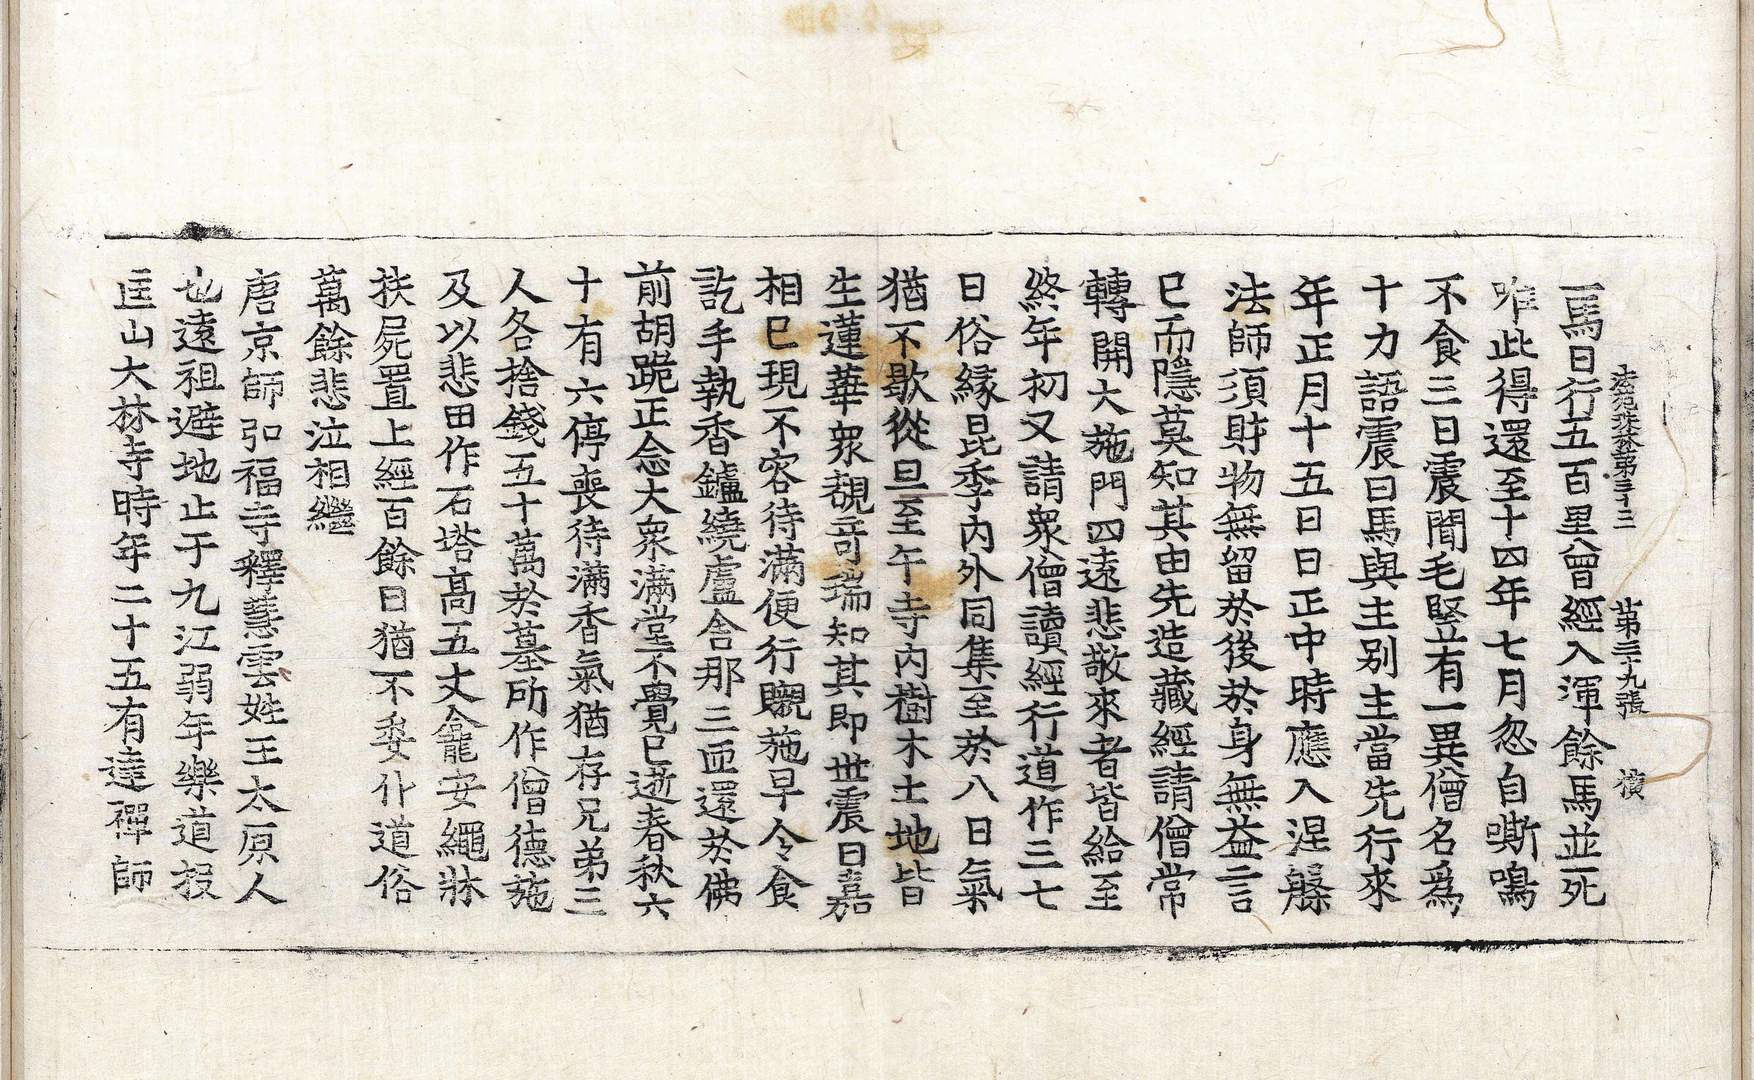 法苑珠林第三十三 第三十九張 横
一馬日行五百里曾經入渾餘馬並死
唯此得還至十四年七月忽自嘶鳴
不食三日震聞毛竪有一異僧名爲
十力語震曰馬與主別主當先行來
年正月十五日日正中時應入涅槃
法師須財物無留於後於身無益言
已而隱莫知其由先造藏經請僧常
轉開大施門四遠悲敬來者皆給至
終年初又請衆僧讀經行道作三七
日俗緣昆季內外同集至於八日氣
猶不歇從旦至午寺內樹木土地皆
生蓮華衆覩奇瑞知其即世震曰嘉
相已現不容待滿便行嚫施早令食
訖手執香鑪繞盧舍那三匝還於佛
前胡跪正念大衆滿堂不覺已逝春秋六
十有六停喪待滿香氣猶存兄弟三
人各捨錢五十萬於墓所作僧德施
及以悲田作石塔高五丈龕安繩牀
扶屍置上經百餘日猶不委仆道俗
萬餘悲泣相繼
唐京師弘福寺釋慧雲姓王太原人
也遠祖避地止于九江弱年樂道投
匡山大林寺時年二十五有達禪師